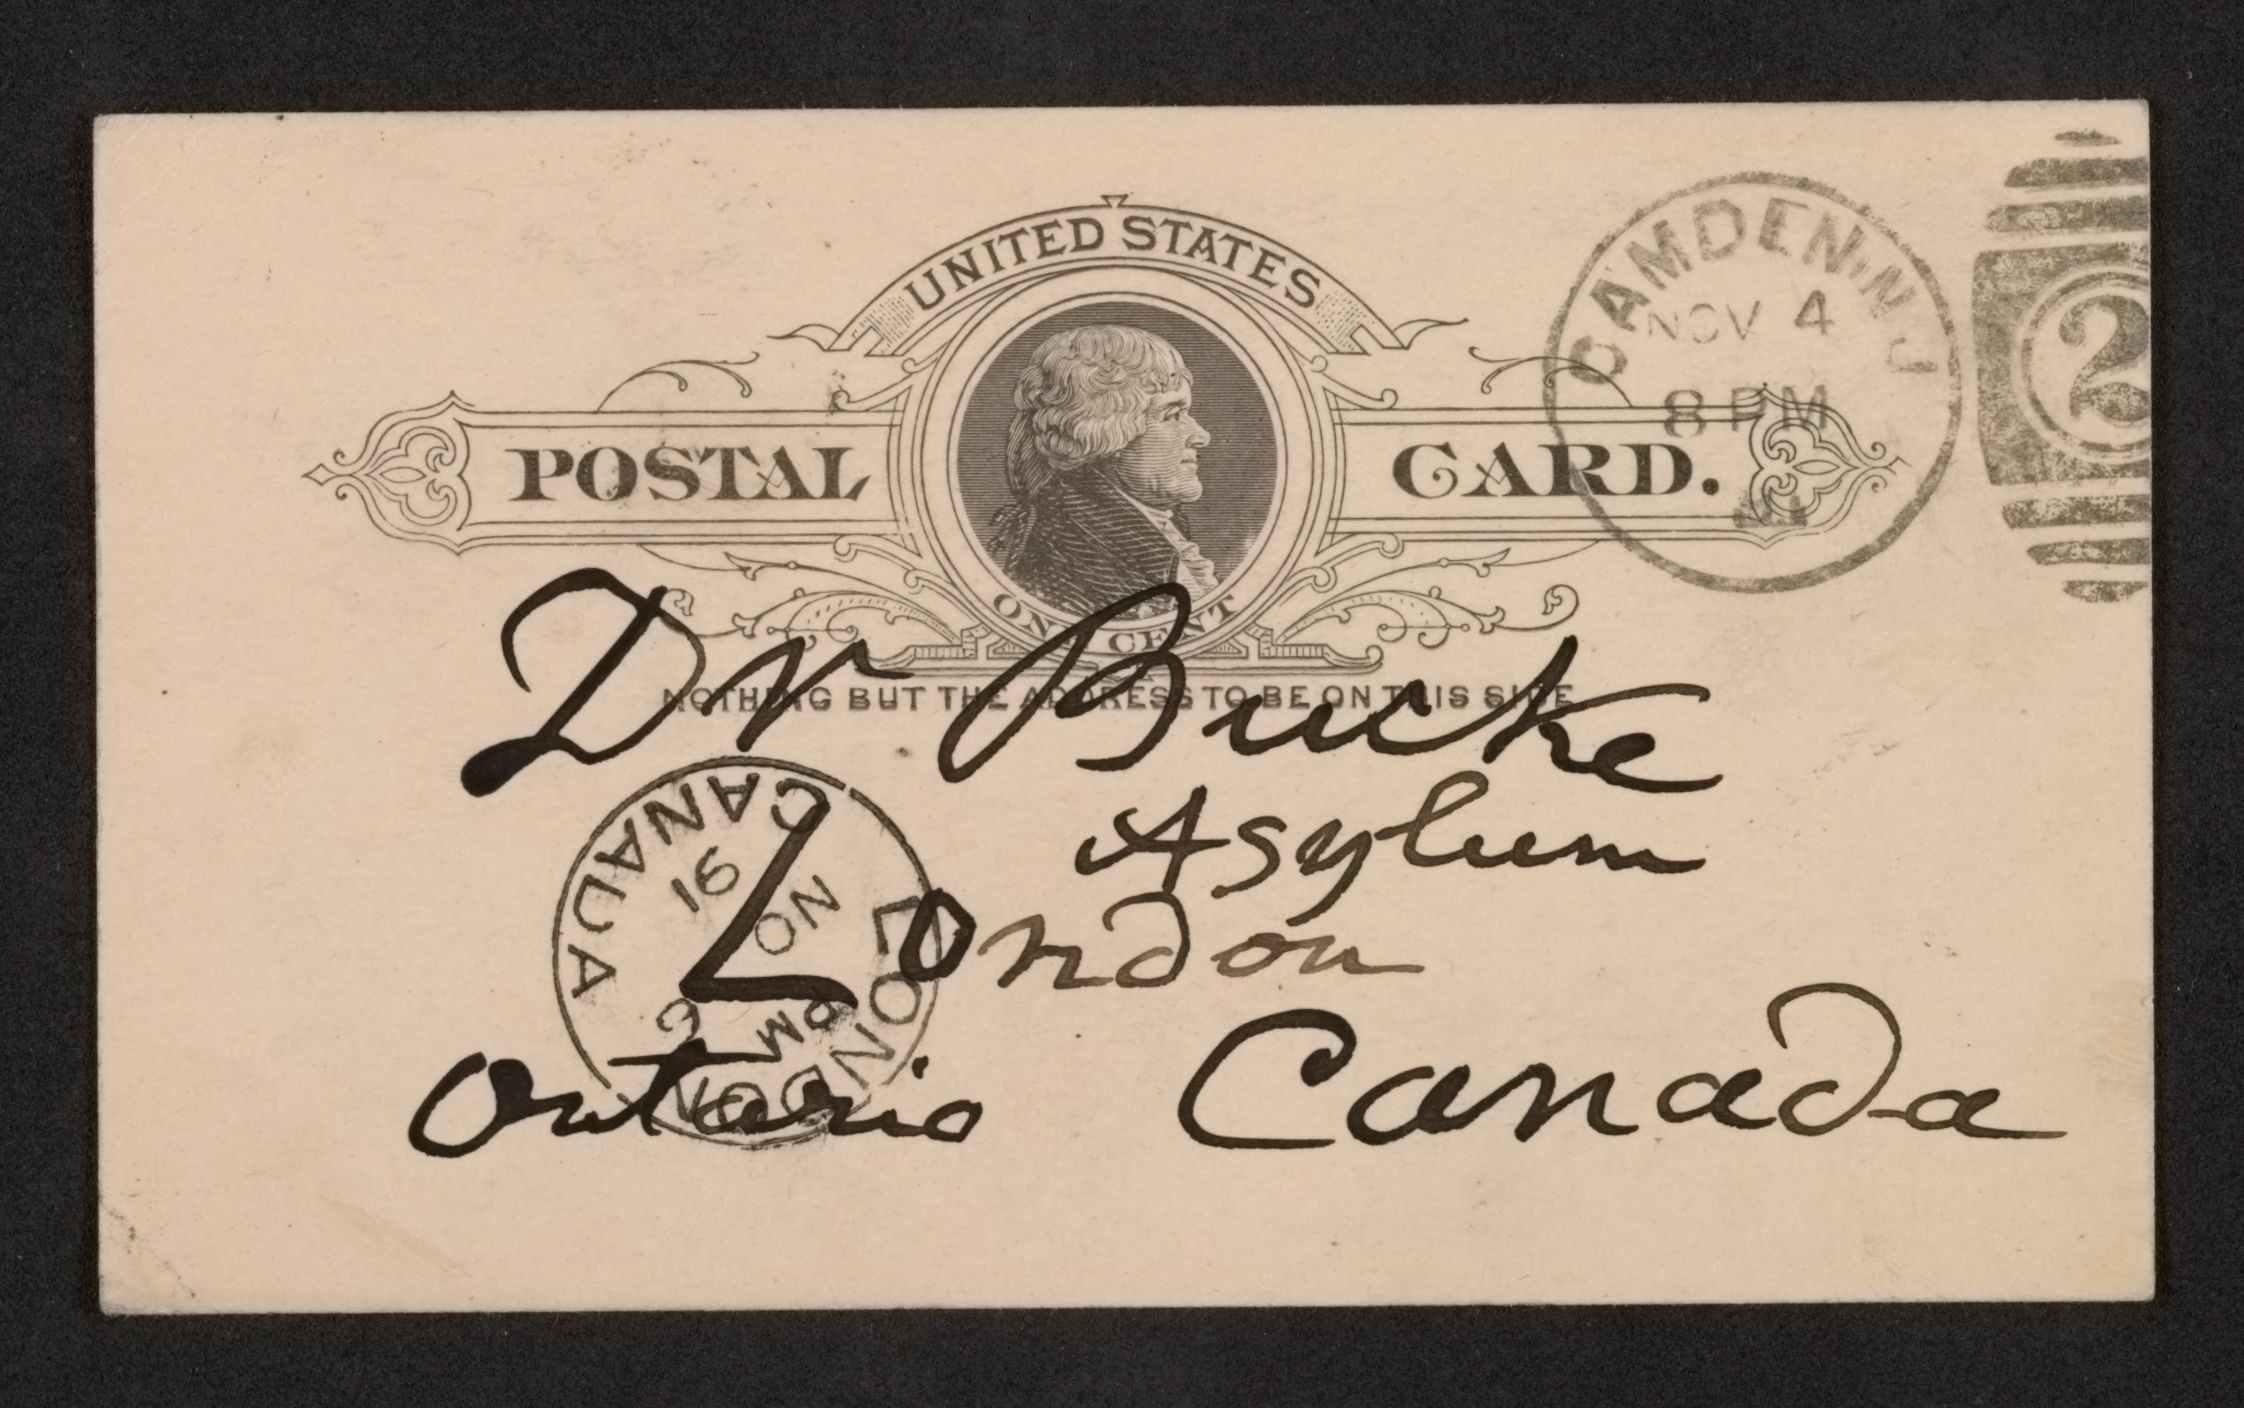 UNITED STATES
POSTAL CARD.
ONE CENT
NOTHING BUT THE ADDRESS TO BE ON THIS SIDE
CAMDEN, N.J.
NOV 4
8 PM
91
2
Dr Bucke
Asylum
London
Ontario Canada
LONDON
PM
NO
91
CANADA